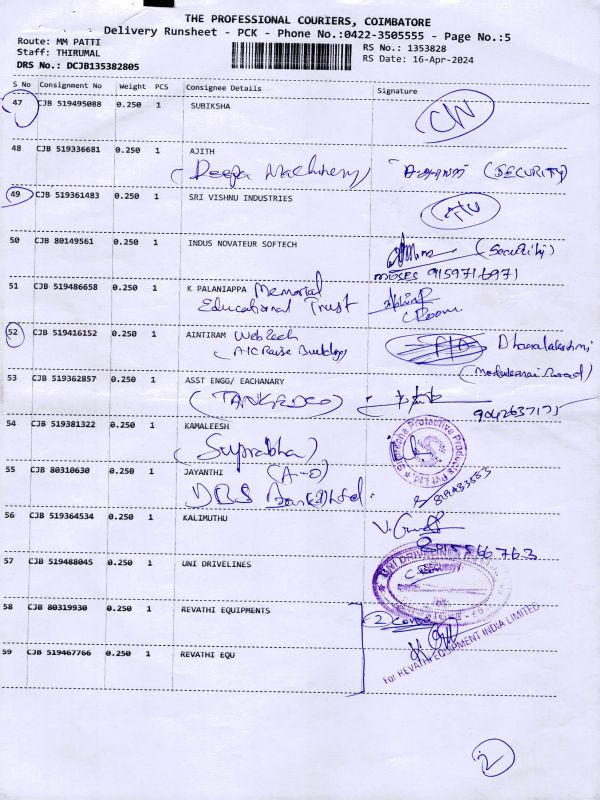 THE PROFESSIONAL COURIERS, COIMBATORE
Delivery Runsheet - PCK - Phone No.:0422-3505555 - Page No.:5
Route: MM PATTI
Staff: THIRUMAL
DRS No.: DCJB135382805
RS No.: 1353828
RS Date: 16-Apr-2024
S No Consignment No Weight PCS Consignee Details Signature
47 CJB 519495088 0.250 1 SUBIKSHA
48 CJB 519336681 0.250 1 AJITH
(Deepa Machinery) (SECURITY)
49 CJB 519361483 0.250 1 SRI VISHNU INDUSTRIES
50 CJB 80149561 0.250 1 INDUS NOVATEUR SOFTECH (Security)
51 CJB 519486658 0.250 1 K PALANIAPPA Memorial
Educational Trust
52 CJB 519416152 0.250 1 AINTIRAM Webtech
53 CJB 519362857 0.250 1 ASST ENGG/ EACHANARY
(TANGEDCO)
9042637175
54 CJB 519381322 0.250 1 KAMALEESH
(Suprabha)
55 CJB 80310630 0.250 1 JAYANTHI (A-O)
DBS Bank Ltd.
56 CJB 519364534 0.250 1 KALIMUTHU
57 CJB 519488045 0.250 1 UNI DRIVELINES
58 CJB 80319930 0.250 1 REVATHI EQUIPMENTS
2 Cover
59 CJB 519467766 0.250 1 REVATHI EQU
For REVATHI EQUIPMENT INDIA LIMITED
2